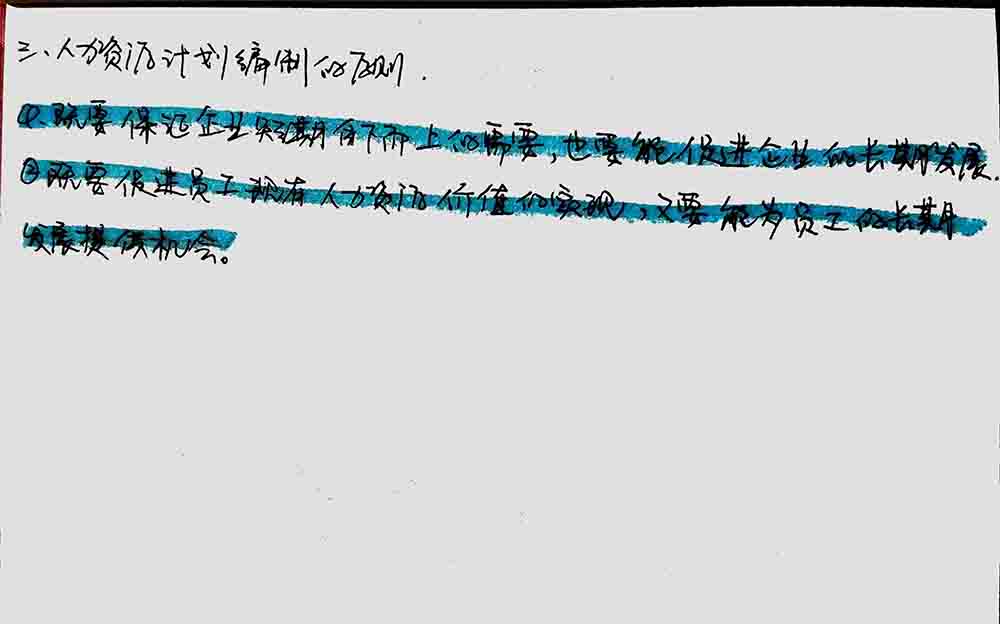 三、人力资源计划编制的原则.
①既要保证企业短期自下而上的需要,也要能促进企业的长期发展.
②既要促进员工现有人力资源价值的实现,又要能为员工的长期
发展提供机会。